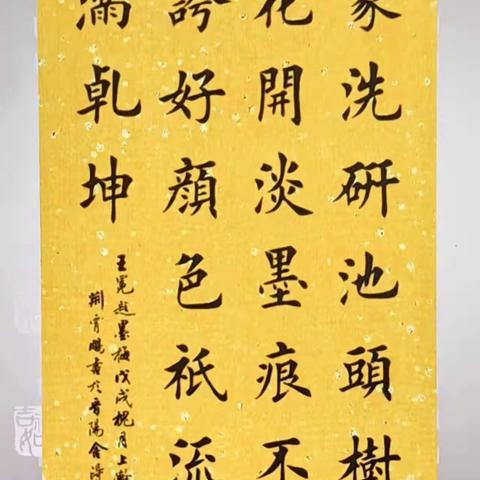 家洗研池頭樹
花開淡墨痕不
誇好顔色祇流
滿乹坤
王冕題墨梅戊戌槐月上澣
荆霄鵬書於晋陽